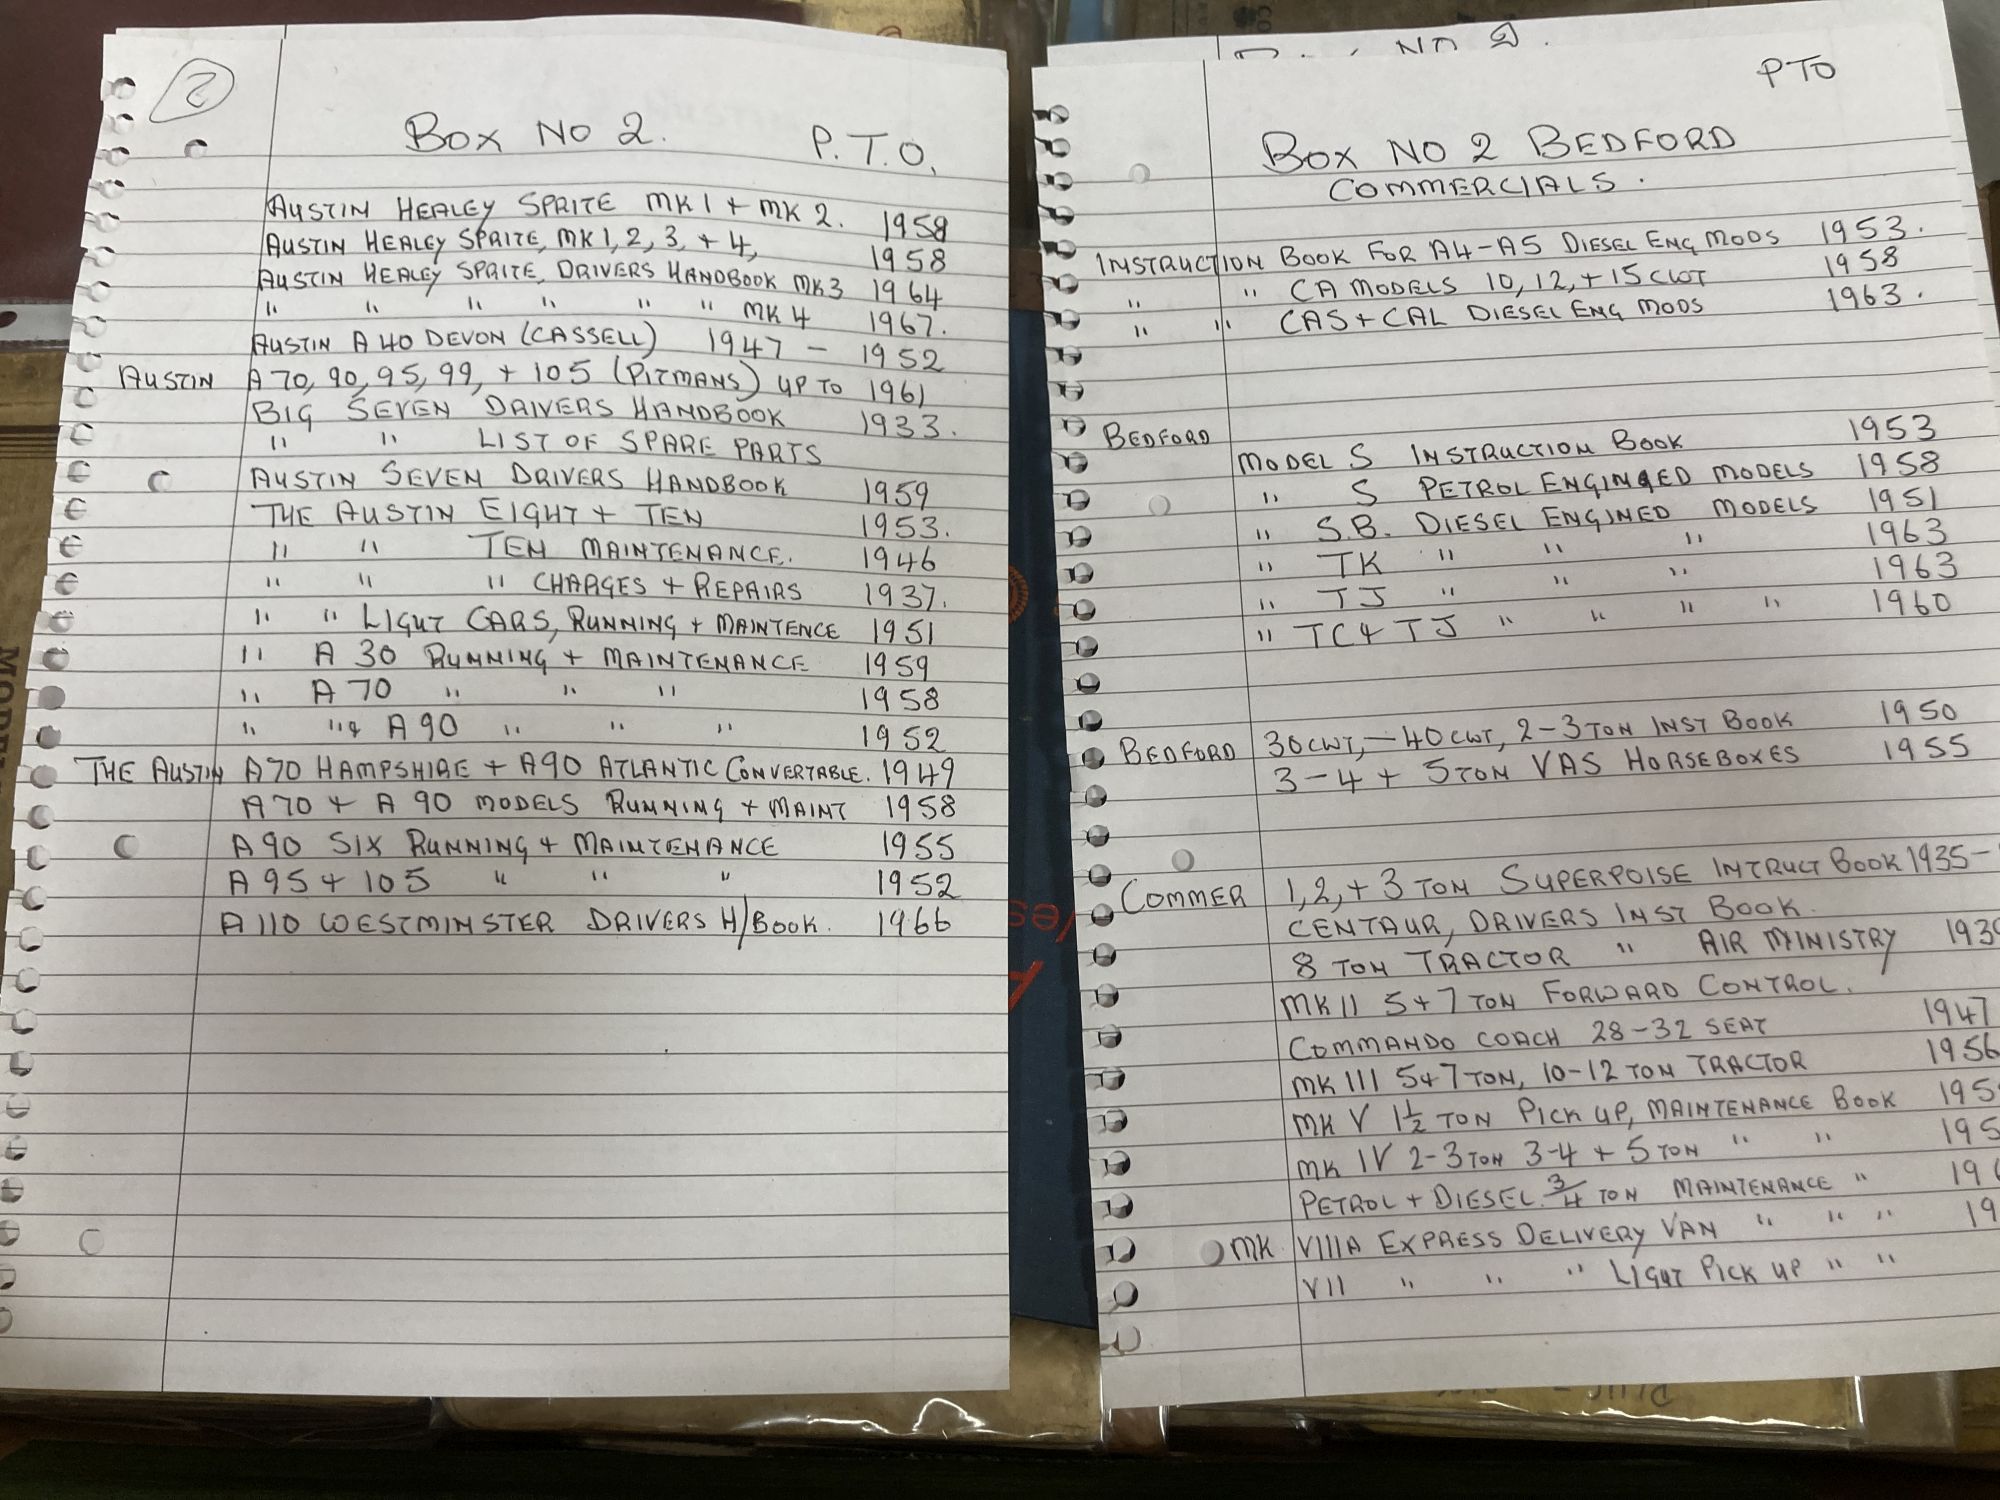 2
Box No 2. P.T.O.
AUSTIN HEALEY SPRITE MK1 + MK 2. 1958
AUSTIN HEALEY SPRITE, MK 1, 2, 3, + 4, 1958
AUSTIN HEALEY SPRITE, DRIVERS HANDBOOK MK3 1964
" " " " " " MK 4 1967.
AUSTIN A 40 DEVON (CASSELL) 1947 - 1952
AUSTIN A 70, 90, 95, 99, + 105 (PITMANS) UP TO 1961
BIG SEVEN DRIVERS HANDBOOK 1933.
" " LIST OF SPARE PARTS
AUSTIN SEVEN DRIVERS HANDBOOK 1959
THE AUSTIN EIGHT + TEN 1953.
" " TEN MAINTENANCE. 1946
" " " CHARGES + REPAIRS 1937.
" " LIGHT CARS, RUNNING + MAINTENCE 1951
" A 30 RUNNING + MAINTENANCE 1959
" A 70 " " " 1958
" "& A 90 " " " 1952
THE AUSTIN A70 HAMPSHIRE + A90 ATLANTIC CONVERTABLE. 1949
A70 + A 90 MODELS RUNNING + MAINT 1958
A 90 SIX RUNNING + MAINTENANCE 1955
A 95 + 105 " " " 1952
A 110 WESTMINSTER DRIVERS H/BOOK. 1966
No 2.
PTO
BOX NO 2 BEDFORD
COMMERCIALS.
INSTRUCTION BOOK FOR A4-A5 DIESEL ENG MODS 1953.
" " CA MODELS 10, 12, + 15 CWT 1958
" " CAS + CAL DIESEL ENG MODS 1963.
BEDFORD MODEL S INSTRUCTION BOOK 1953
" S PETROL ENGINED MODELS 1958
" S.B. DIESEL ENGINED MODELS 1951
" TK " " " 1963
" TJ " " " 1963
" TC & TJ " " " " 1960
BEDFORD 30CWT, - 40CWT, 2-3 TON INST BOOK 1950
3-4 + 5 TON VAS HORSEBOXES 1955
COMMER 1, 2, + 3 TON SUPERPOISE INTRUCT BOOK 1935-
CENTAUR, DRIVERS INST BOOK.
8 TON TRACTOR " AIR MINISTRY
MK II 5+7 TON FORWARD CONTROL.
COMMANDO COACH 28-32 SEAT 1947
MK III 5+7 TON, 10-12 TON TRACTOR 1956
MK V 1½ TON PICK UP, MAINTENANCE BOOK 195
MK IV 2-3 TON 3-4 + 5 TON " " 195
PETROL + DIESEL. ¾ TON MAINTENANCE " 19
MK VIIIA EXPRESS DELIVERY VAN " " " 19
VII " " " LIGHT PICK UP " "